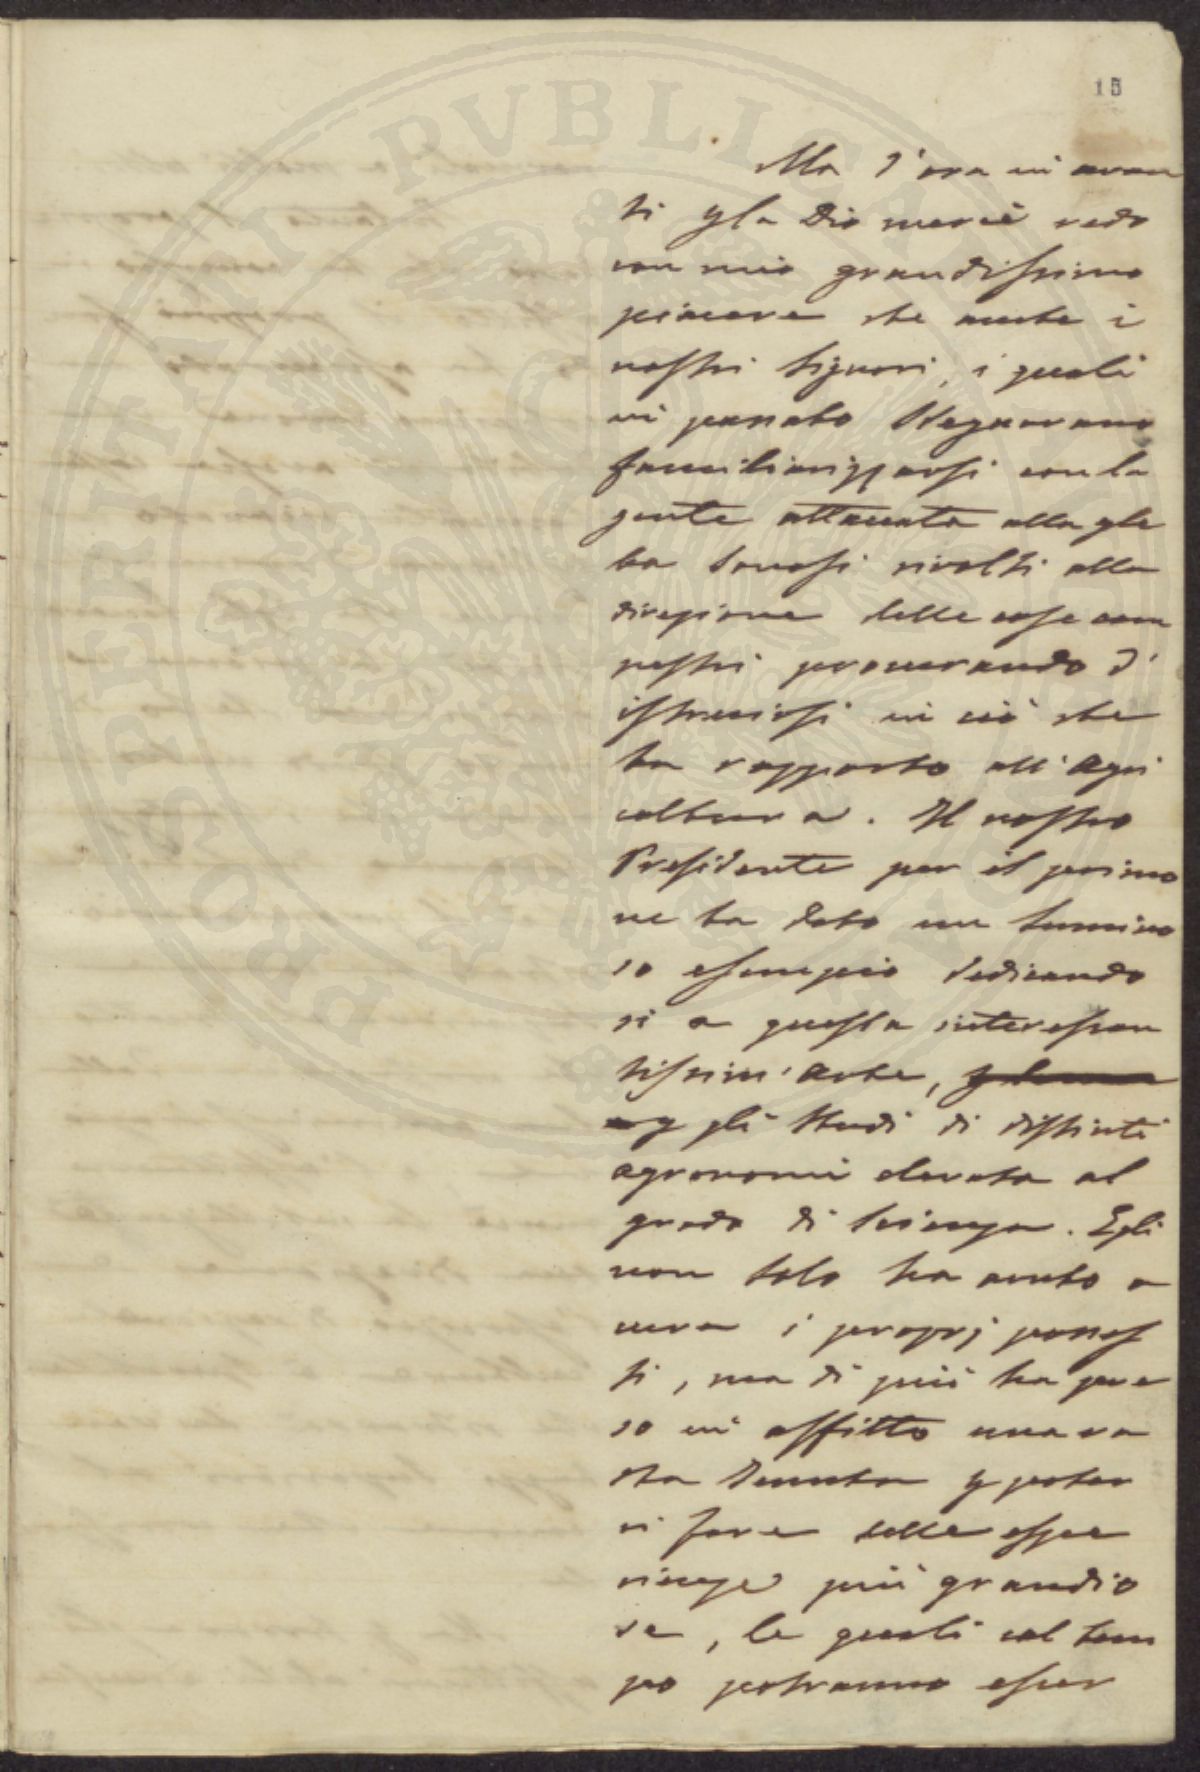 15
PROSPERITATI PVBLICAE
Ma d'ora in avan
ti p la Dio mercè vedo
con mio grandissimo
piacere che anche i
nostri Signori, i quali
in passato sdegnavano
familiarizzarsi con la
gente attaccata alla gle
ba sonosi rivolti alla
direzione delle cose cam
pestri procurando d'
istruirsi in ciò che
ha rapporto all'Agri
coltura. Il nostro
Presidente per il primo
ne ha dato un lumino
so esempio dedicando
si a questa interessan
tissim'Arte,
p gli Studi di distinti
agronomi elevata al
grado di Scienza. Egli
non solo ha avuto a
cura i proprj posses
si, ma di più ha pre
so in affitto una va
sta tenuta p poter
vi fare delle espe
rienze più grandio
se, le quali col tem
po potranno esser